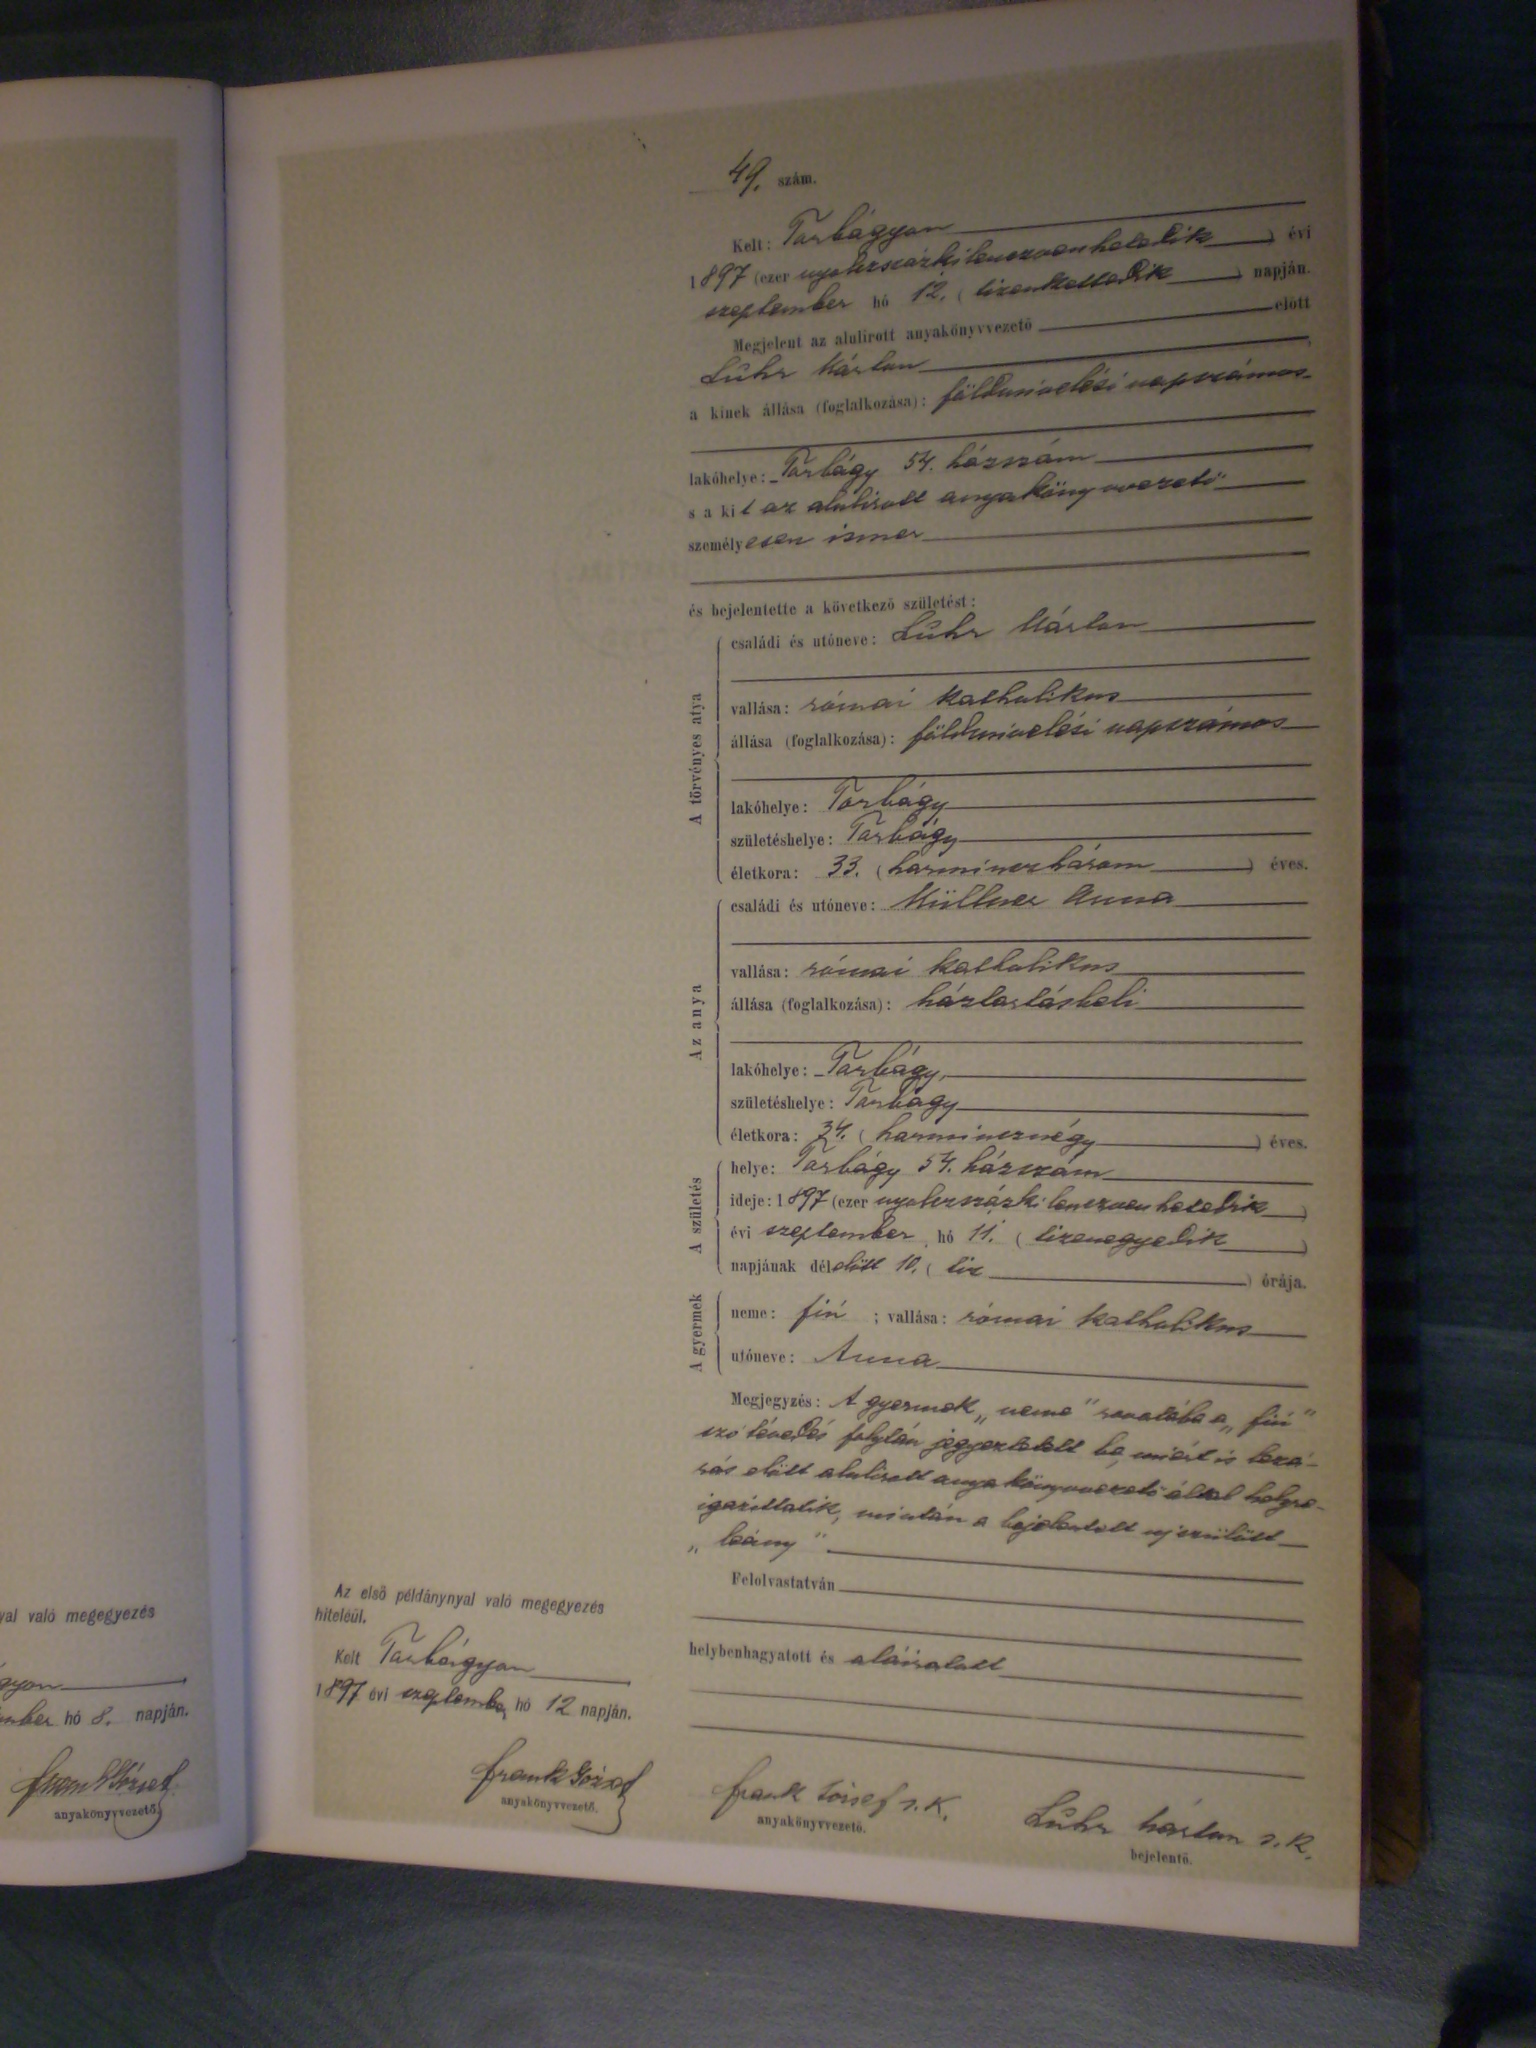 49. szám.
Kelt: Torbágyon
1897 (ezer nyolczszázkilenczvenhetedik) évi
szeptember hó 12. (tizenkettedik) napján.
Megjelent az alulirott anyakönyvvezető előtt
Lühr Márton
a kinek állása (foglalkozása): földmivelési napszámos
lakóhelye: Torbágy 54. házszám
s a kit az alulirott anyakönyvvezető
személyesen ismer
és bejelentette a következő születést:
A törvényes atya
családi és utóneve: Lühr Márton
vallása: római katholikus
állása (foglalkozása): földmivelési napszámos
lakóhelye: Torbágy
születéshelye: Torbágy
életkora: 33. (harminczhárom) éves.
Az anya
családi és utóneve: Müllner Anna
vallása: római katholikus
állása (foglalkozása): háztartásbeli
lakóhelye: Torbágy,
születéshelye: Torbágy
életkora: 34. (harmincznégy) éves.
A születés
helye: Torbágy 54. házszám
ideje: 1897 (ezer nyolczszázkilenczvenhetedik)
évi szeptember hó 11. (tizenegyedik)
napjának délelőtt 10. (tiz) órája.
A gyermek
neme: fiú ; vallása: római katholikus
utóneve: Anna
Megjegyzés: A gyermek „neme" rovatába a „fiú"
szó tévedés folytán jegyeztetett be, miért is lezá-
rás előtt alulirott anyakönyvvezető által helyre-
igazittatik, miután a bejelentett ujszülött
„leány"
Felolvastatván
helybenhagyatott és aláiratott
Frank József s. k.
anyakönyvvezető.
Lühr Márton s. k.
bejelentő.
Az első példánynyal való megegyezés
hiteléül.
Kelt Torbágyon
1897 évi szeptember hó 12 napján.
Frank József
anyakönyvvezető.
yal való megegyezés
ágyon
ember hó 8. napján.
Frank József
anyakönyvvezető.